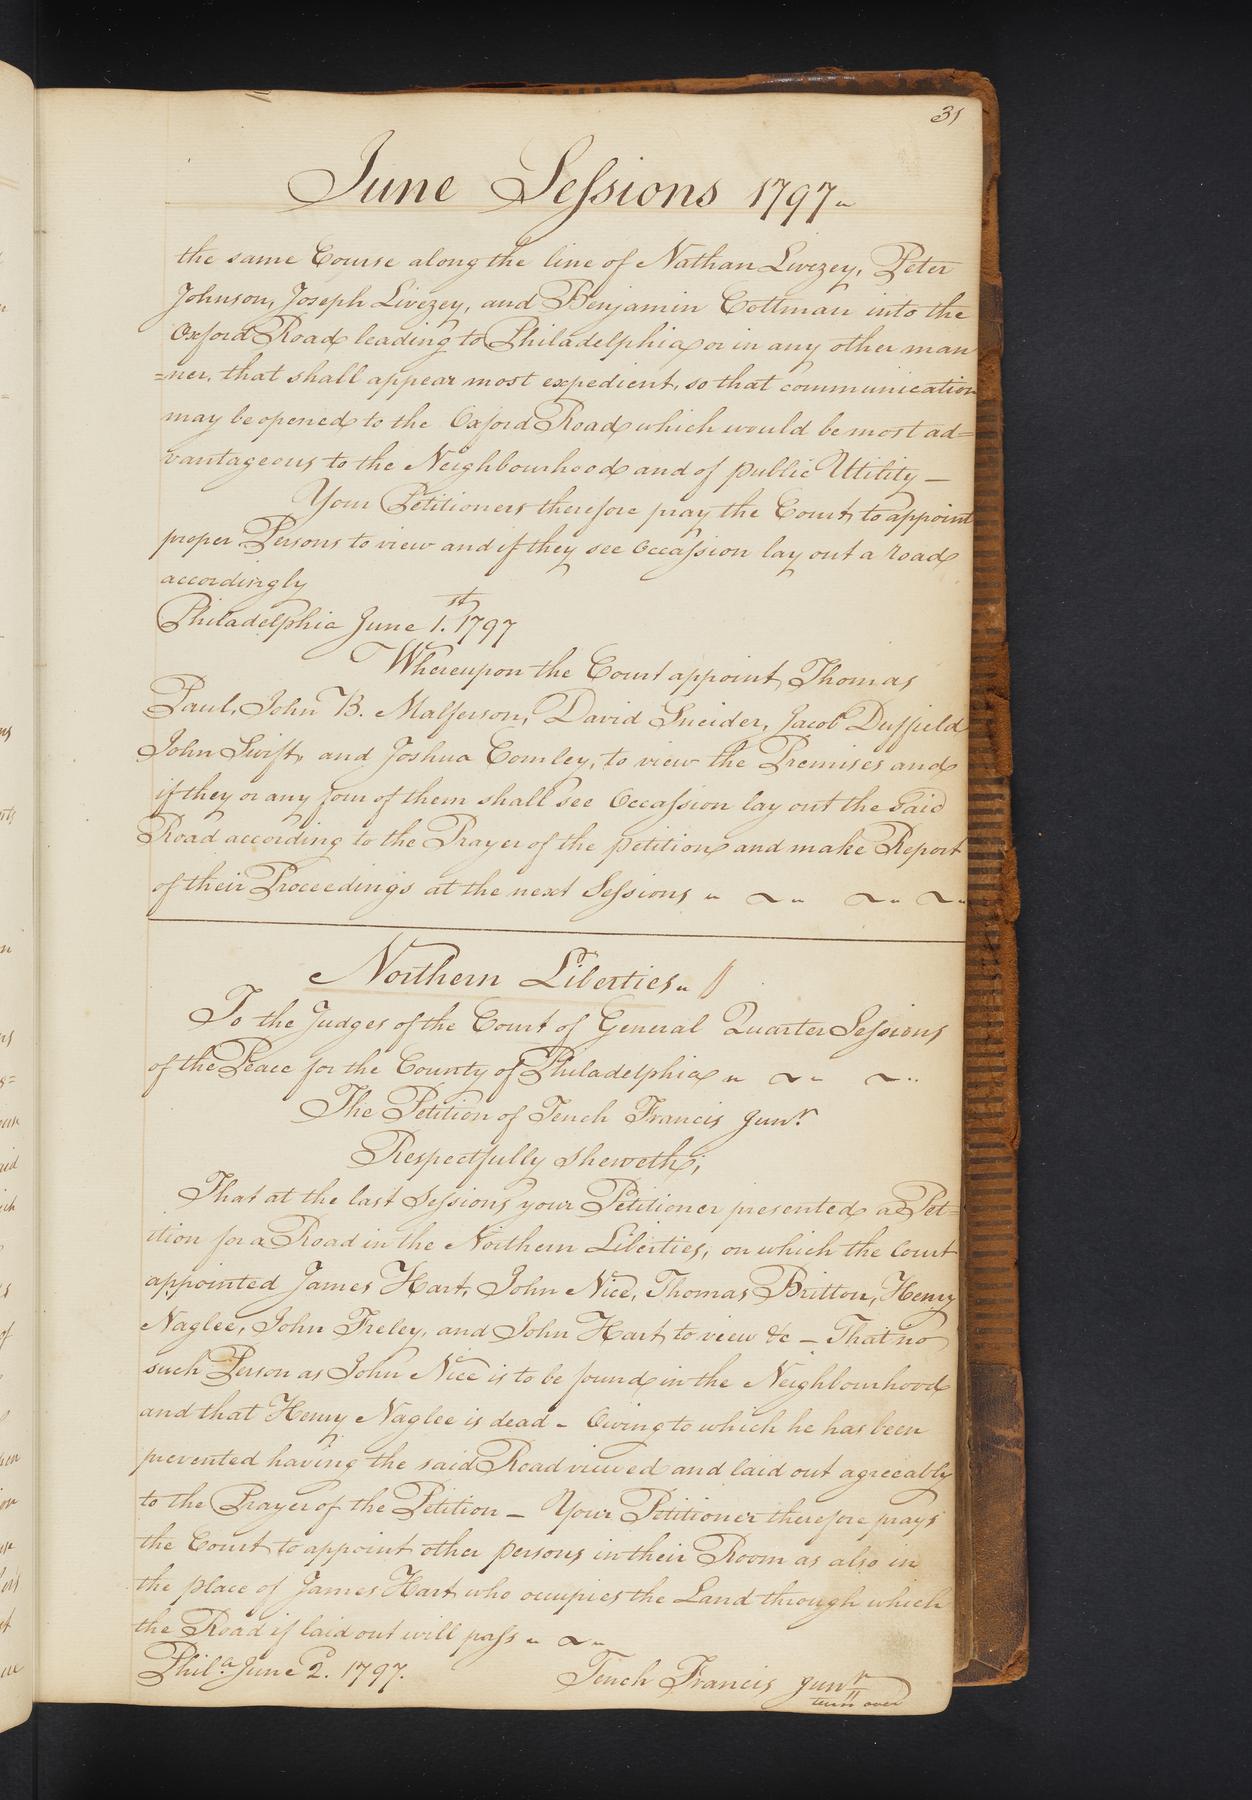 31
June Sessions 1797
the same Course along the line of Nathan Livezey, Peter
Johnson, Joseph Livezey, and Benjamin Cottman into the
Oxford Road leading to Philadelphia or in any other man
=ner, that shall appear most expedient, so that communication
may be opened to the Oxford Road which would be most ad=
vantageous to the Neighbourhood and of public Utility —
Your Petitioners therefore pray the Court to appoint
proper Persons to view and if they see Occassion lay out a road
accordingly
Philadelphia June 1.st 1797
Whereupon the Court appoint Thomas
Paul, John B. Malferson, David Sneider, Jacob Duffield
John Swift, and Joshua Comley, to view the Premises and
if they or any four of them shall see Occassion lay out the said
Road according to the Prayer of the petition and make Report
of their Proceedings at the next Sessions
Northern Liberties
To the Judges of the Court of General Quarter Sessions
of the Peace for the County of Philadelphia
The Petition of Tench Francis Junr.
Respectfully sheweth;
That at the last Sessions your Petitioner presented a Pet=
ition for a Road in the Northern Liberties, on which the Court
appointed James Hart, John Nice, Thomas Britton, Henry
Naglee, John Freley, and John Hart to view &c — That no
such Person as John Nice is to be found in the Neighbourhood
and that Henry Naglee is dead - Owing to which he has been
prevented having the said Road viewed and laid out agreeably
to the Prayer of the Petition — Your Petitioner therefore prays
the Court to appoint other persons in their Room as also in
the place of James Hart who occupies the Land through which
the Road if laid out will pass
Phila. June 2. 1797.
Tench Francis Junr
turn over